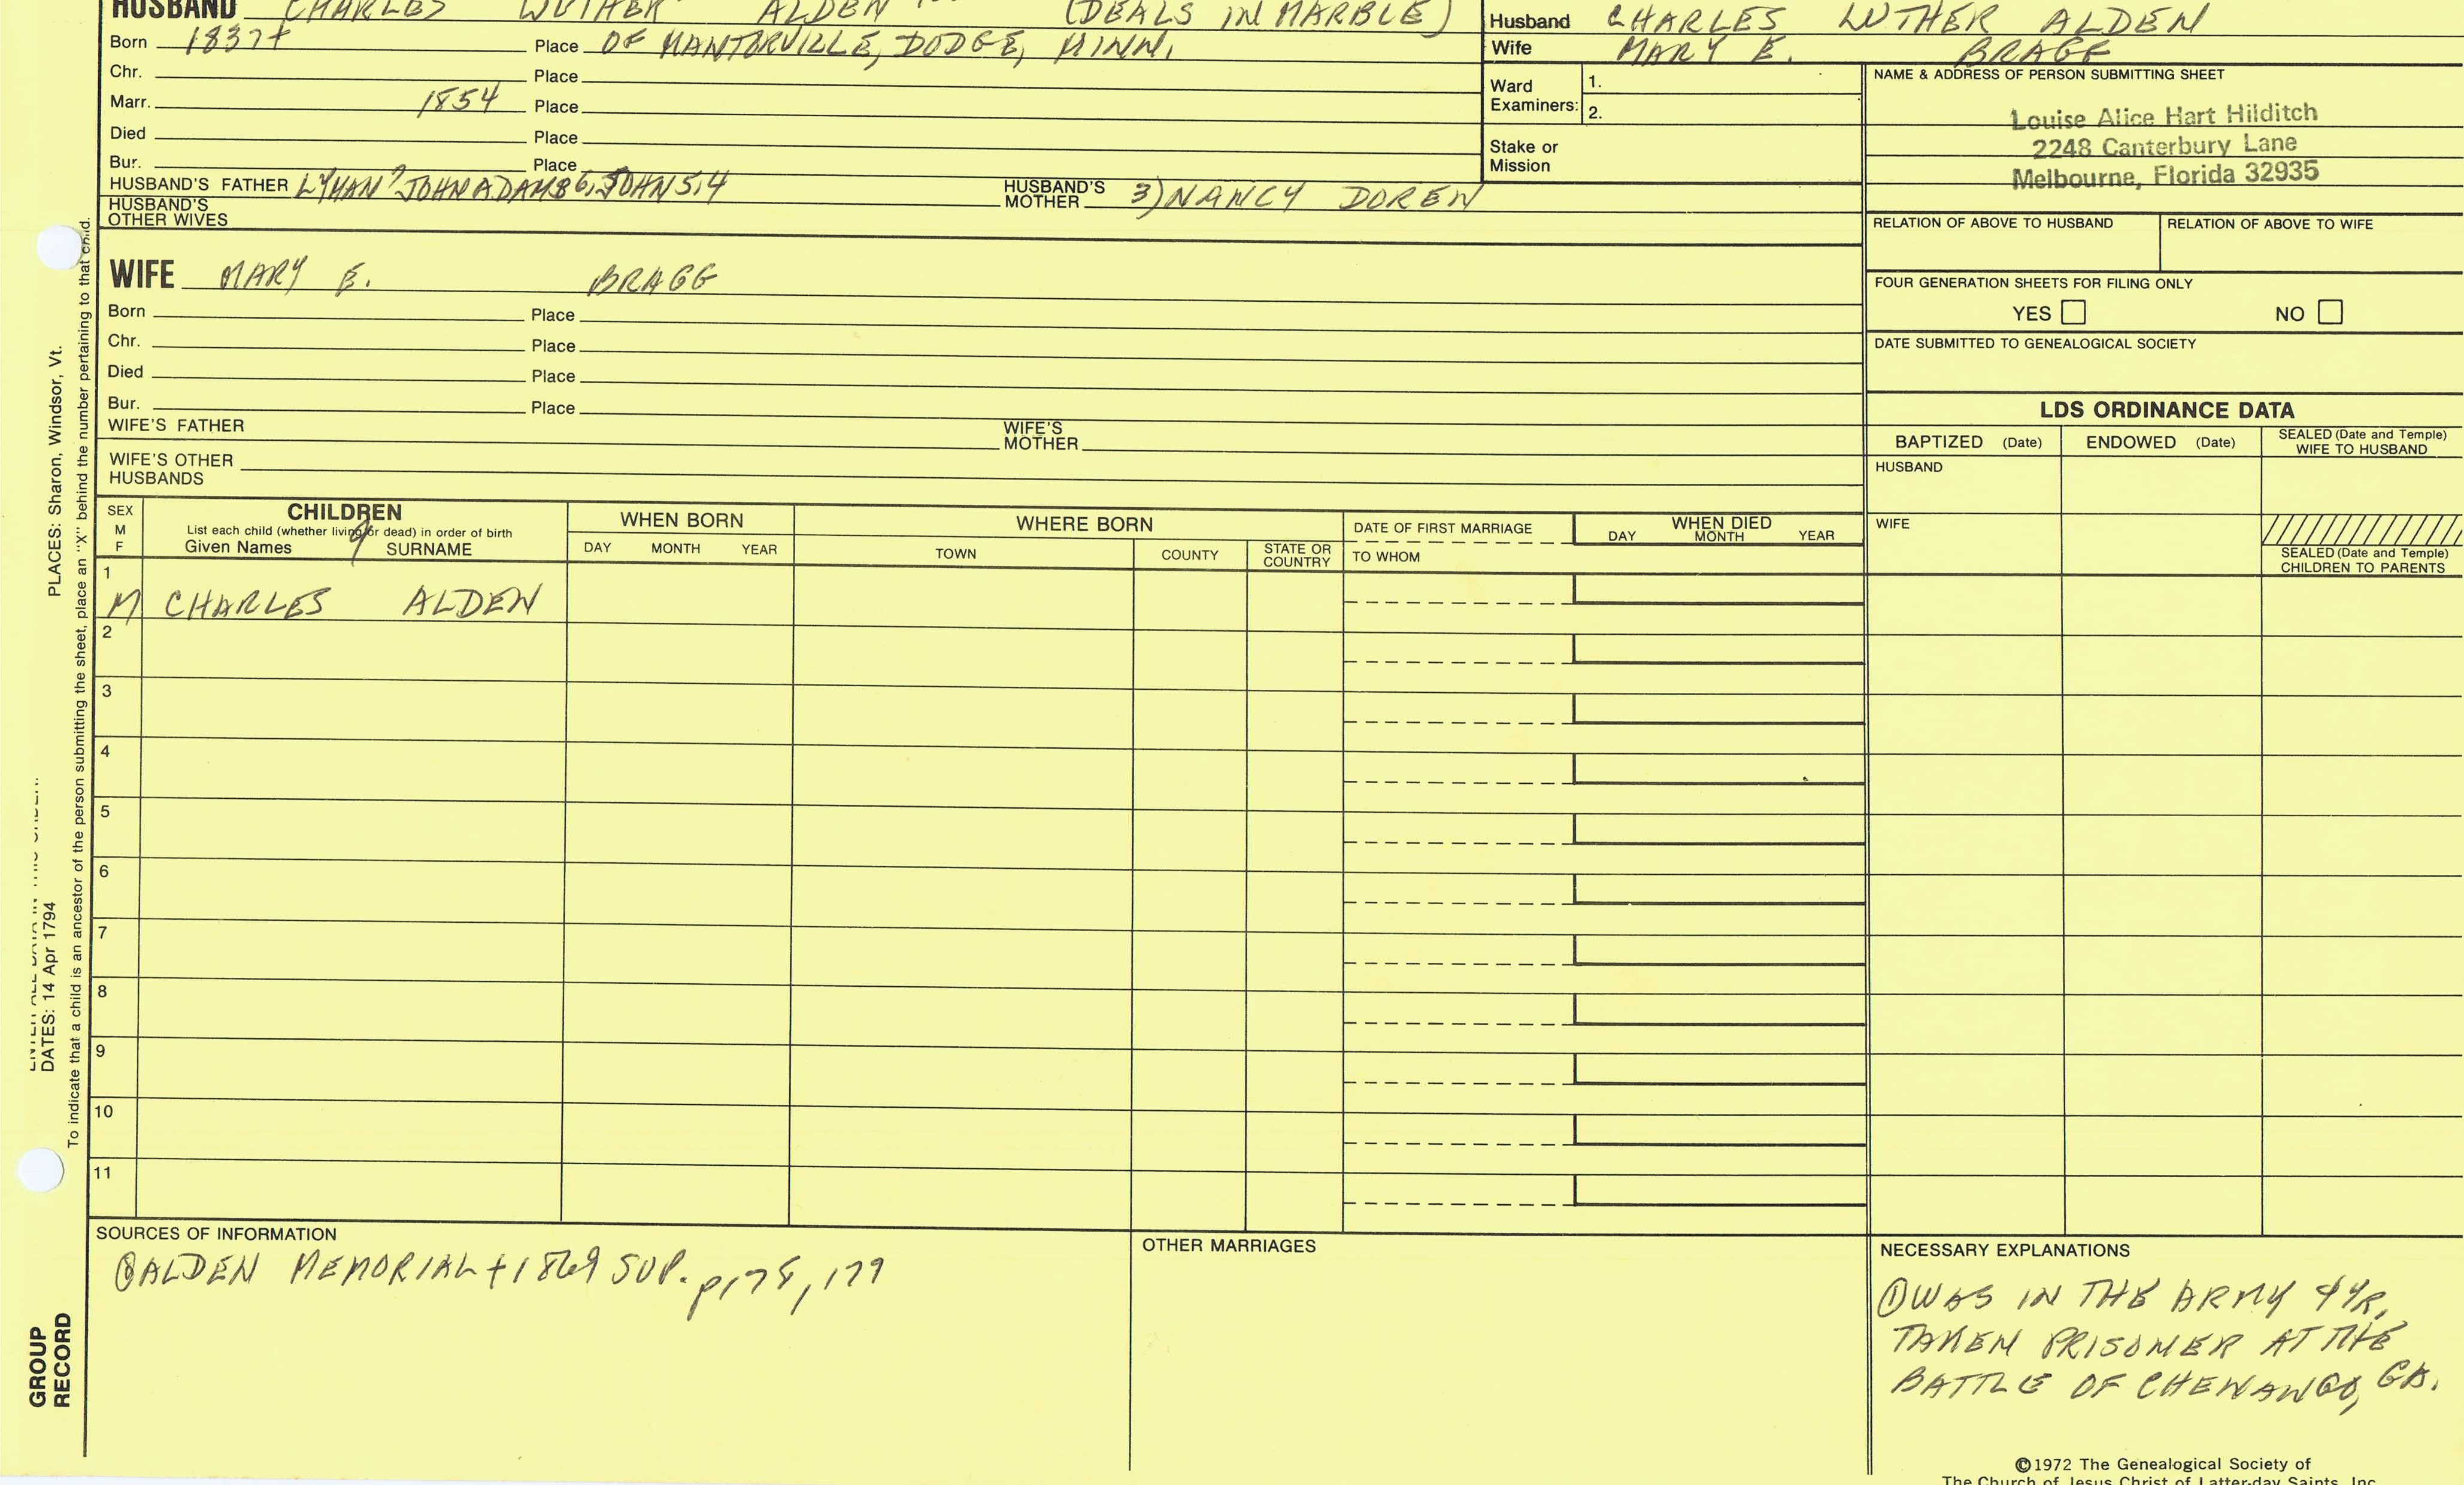 HUSBAND CHARLES LUTHER ALDEN (DEALS IN MARBLE)
Born 1837+ Place OF MANTORVILLE, DODGE, MINN.
Chr. Place
Marr. 1854 Place
Died Place
Bur. Place
HUSBAND'S FATHER LYMAN 7 JOHN ADAMS 6, JOHN 5,4 HUSBAND'S MOTHER 3) NANCY DOREN
HUSBAND'S OTHER WIVES
Husband CHARLES LUTHER ALDEN
Wife MARY E. BRAGG
Ward Examiners: 1.
2.
Stake or Mission
NAME & ADDRESS OF PERSON SUBMITTING SHEET
Louise Alice Hart Hilditch
2248 Canterbury Lane
Melbourne, Florida 32935
RELATION OF ABOVE TO HUSBAND RELATION OF ABOVE TO WIFE
FOUR GENERATION SHEETS FOR FILING ONLY
YES NO
DATE SUBMITTED TO GENEALOGICAL SOCIETY
WIFE MARY E. BRAGG
Born Place
Chr. Place
Died Place
Bur. Place
WIFE'S FATHER WIFE'S MOTHER
WIFE'S OTHER HUSBANDS
LDS ORDINANCE DATA
BAPTIZED (Date) ENDOWED (Date) SEALED (Date and Temple) WIFE TO HUSBAND
HUSBAND
WIFE
SEALED (Date and Temple) CHILDREN TO PARENTS
SEX M F
CHILDREN
List each child (whether living or dead) in order of birth
Given Names SURNAME
WHEN BORN
DAY MONTH YEAR
WHERE BORN
TOWN COUNTY STATE OR COUNTRY
DATE OF FIRST MARRIAGE
TO WHOM
WHEN DIED
DAY MONTH YEAR
1
M CHARLES ALDEN
2
3
4
5
6
7
8
9
10
11
SOURCES OF INFORMATION
ALDEN MEMORIAL + 1869 SUP. p178, 179
OTHER MARRIAGES
NECESSARY EXPLANATIONS
① WAS IN THE ARMY 4 YR,
TAKEN PRISONER AT THE
BATTLE OF CHENANGO, GA.
©1972 The Genealogical Society of
The Church of Jesus Christ of Latter-day Saints, Inc.
PLACES: Sharon, Windsor, Vt.
DATES: 14 Apr 1794
To indicate that a child is an ancestor of the person submitting the sheet, place an "X" behind the number pertaining to that child.
GROUP
RECORD